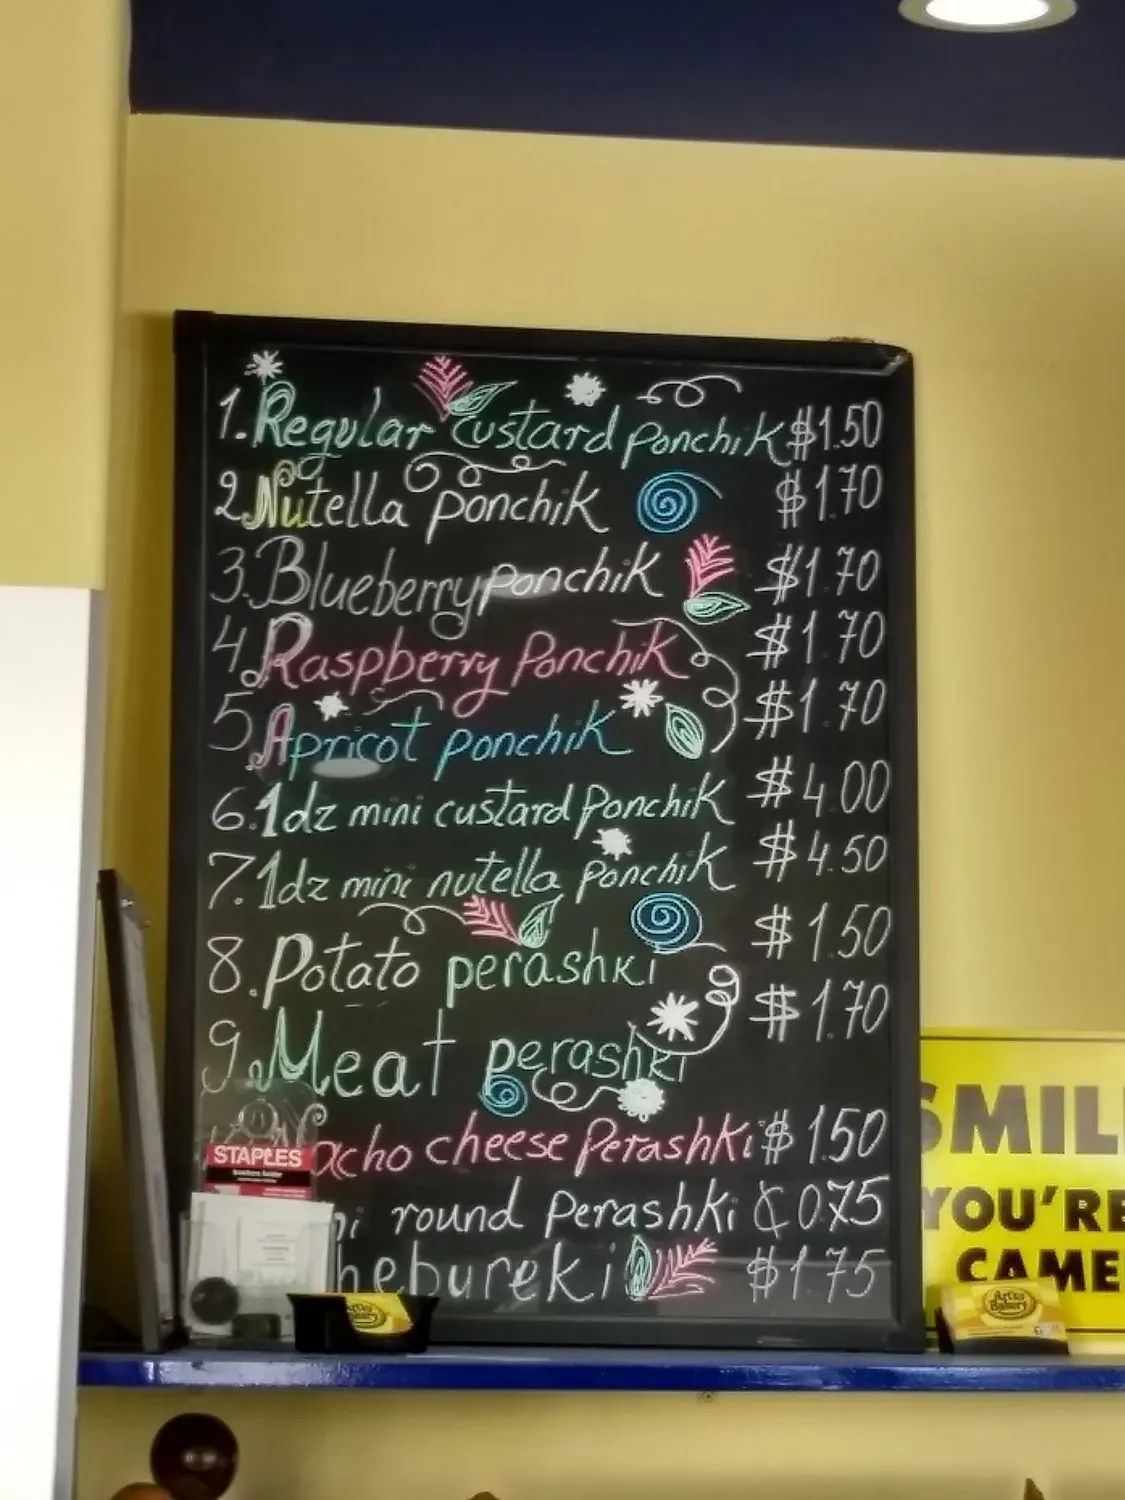 1. Regular custard ponchik $1.50
2. Nutella ponchik $1.70
3. Blueberry ponchik $1.70
4. Raspberry Ponchik $1.70
5. Apricot ponchik $1.70
6. 1dz mini custard ponchik $4.00
7. 1dz mini nutella ponchik $4.50
8. Potato perashki $1.50
9. Meat perashki $1.70
Nacho cheese Perashki $1.50
ni round perashki ¢0.75
hebureki $1.75
STAPLES
SMIL
YOU'RE
CAME
Art's
Bakery